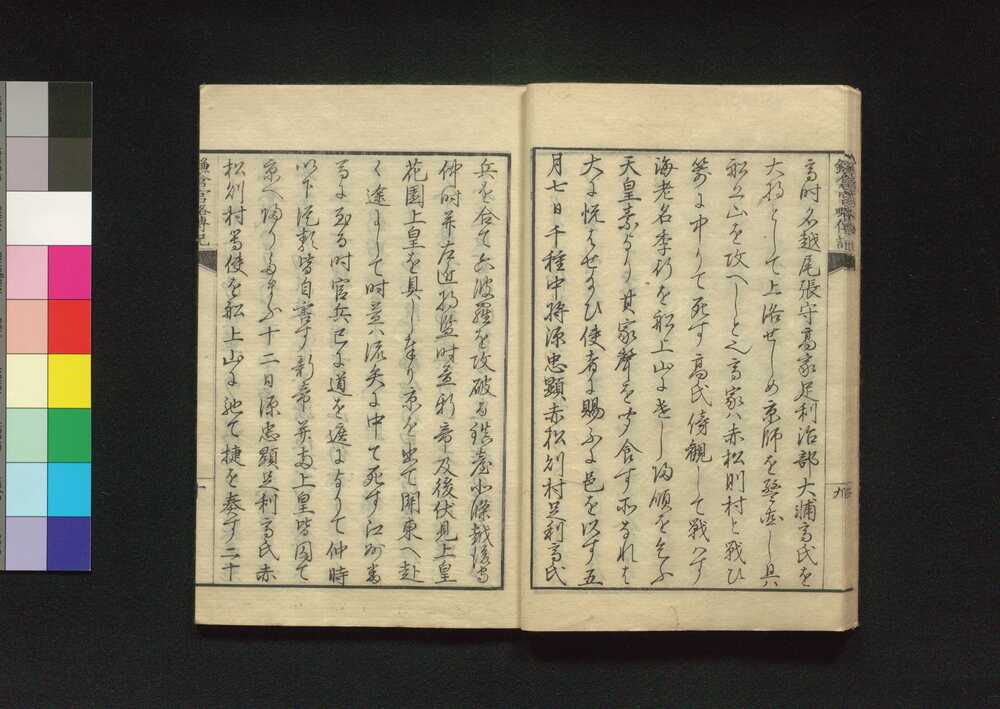 鎌倉宮略傳記
高時名越尾張守高家足利治部大浦高氏を
大将として上洛せしめ京師を警衛し且
船上山を攻へしと也高家ハ赤松則村と戦ひ
箭に中りて死す高氏傍観して戦ハす
海老名季行を船上山に遣し帰順を乞ふ
天皇素より其家聲を聞食す所なれは
大に悦はせ給ひ使者に賜ふに邑を以す五
月七日千種中将源忠顕赤松則村足利高氏
兵を合て六波羅を攻破る鎮臺北條越後守
仲時并左近将監時益新帝及後伏見上皇
花園上皇を具し奉り京を出て関東へ赴
く途にして時益ハ流矢に中て死す江州番
馬に至る時官兵已に道を遮るありて仲時
以下従類皆自害す新帝并両上皇皆囚て
京へ帰り給ふ十二日源忠顕足利高氏赤
松則村等使を船上山に馳て捷を奏す二十
鎌倉宮略傳記